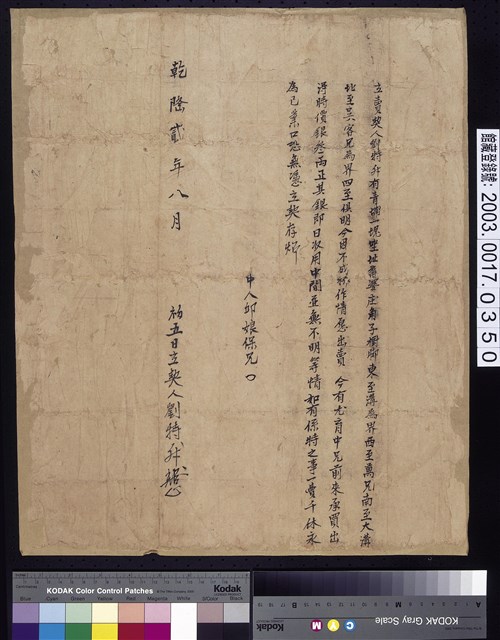 立賣契人劉特升有青埔一塊坐址 庄 子 腳東至溝為界西至萬兄南至大溝
北至吳客兄為界四至俱明今因不成 作情愿出賣今有尤育中兄前來承買出
得時價銀叁兩正其銀即日收用中間並無不明等情如有係特之事一賣千休永
為己業口恐無憑立契存炤
中人邱娘保兄
乾隆貳年八月
初五日立契人劉特升
館藏登錄號：2003.0017.0350
KODAK Color Control Patches
Kodak
Blue Cyan Green Yellow Red Magenta White 3/Color Black
KODAK Gray Scale
Kodak
C Y M
A
B